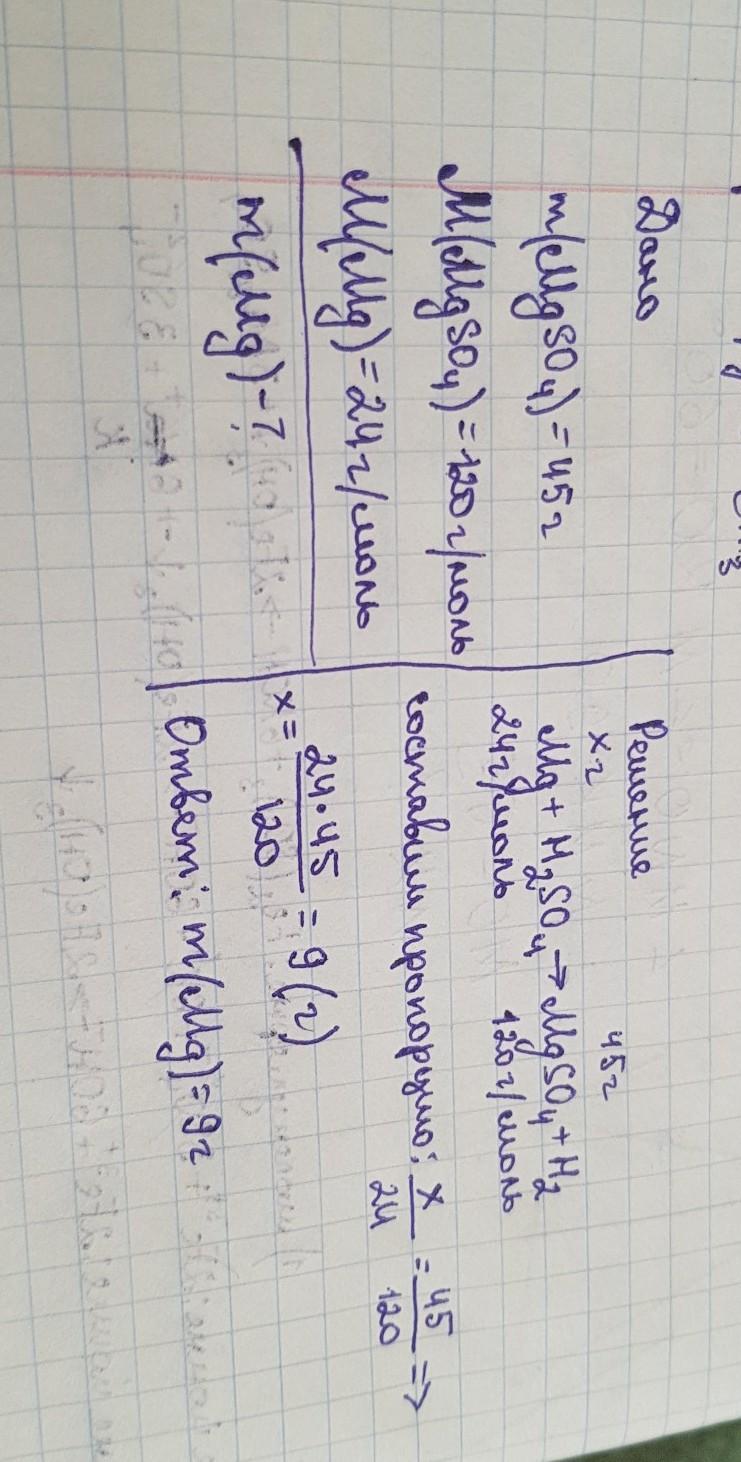 Дано
m(MgSO₄) = 45г
M(MgSO₄) = 120г/моль
M(Mg) = 24г/моль
m(Mg) - ?
Решение
xг 45г
Mg + H₂SO₄ → MgSO₄ + H₂
24г/моль 120г/моль
составим пропорцию: x/24 = 45/120 =>
x = 24·45/120 = 9(г)
Ответ: m(Mg) = 9г